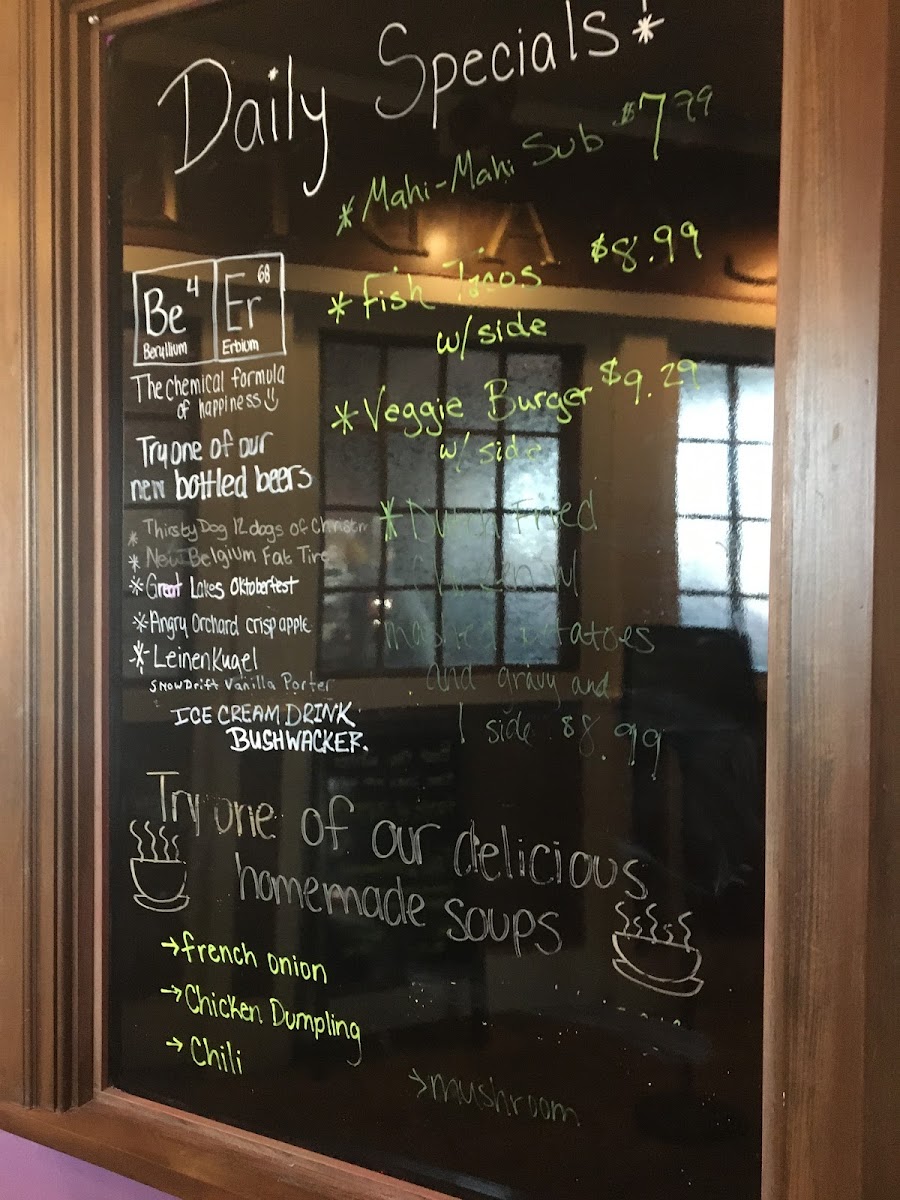 Daily Specials!
* Mahi-Mahi Sub $7.79
* Fish Tacos $8.99
w/ side
* Veggie Burger $9.29
w/ side
* Dutch Fried
Chicken w/
mashed potatoes
and gravy and
1 side $8.99
4 68
Be Er
Beryllium Erbium
The chemical formula
of happiness
Try one of our
new bottled beers
* Thirsty Dog 12 dogs of Christm
* New Belgium Fat Tire
* Great Lakes Oktoberfest
* Angry Orchard crisp apple
* Leinenkugel
SnowDrift Vanilla Porter
ICE CREAM DRINK
BUSHWACKER.
Try one of our delicious
homemade soups
→ french onion
→ Chicken Dumpling
→ Chili
→ mushroom